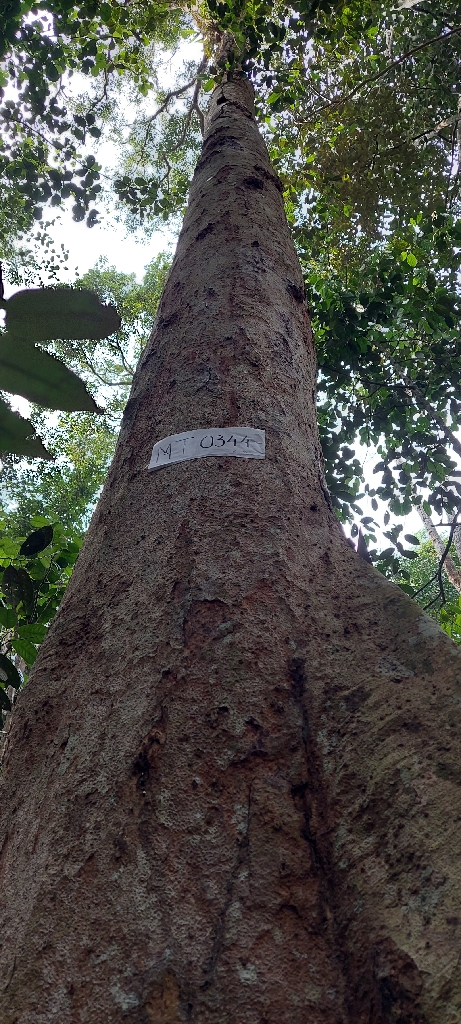 MT 0344